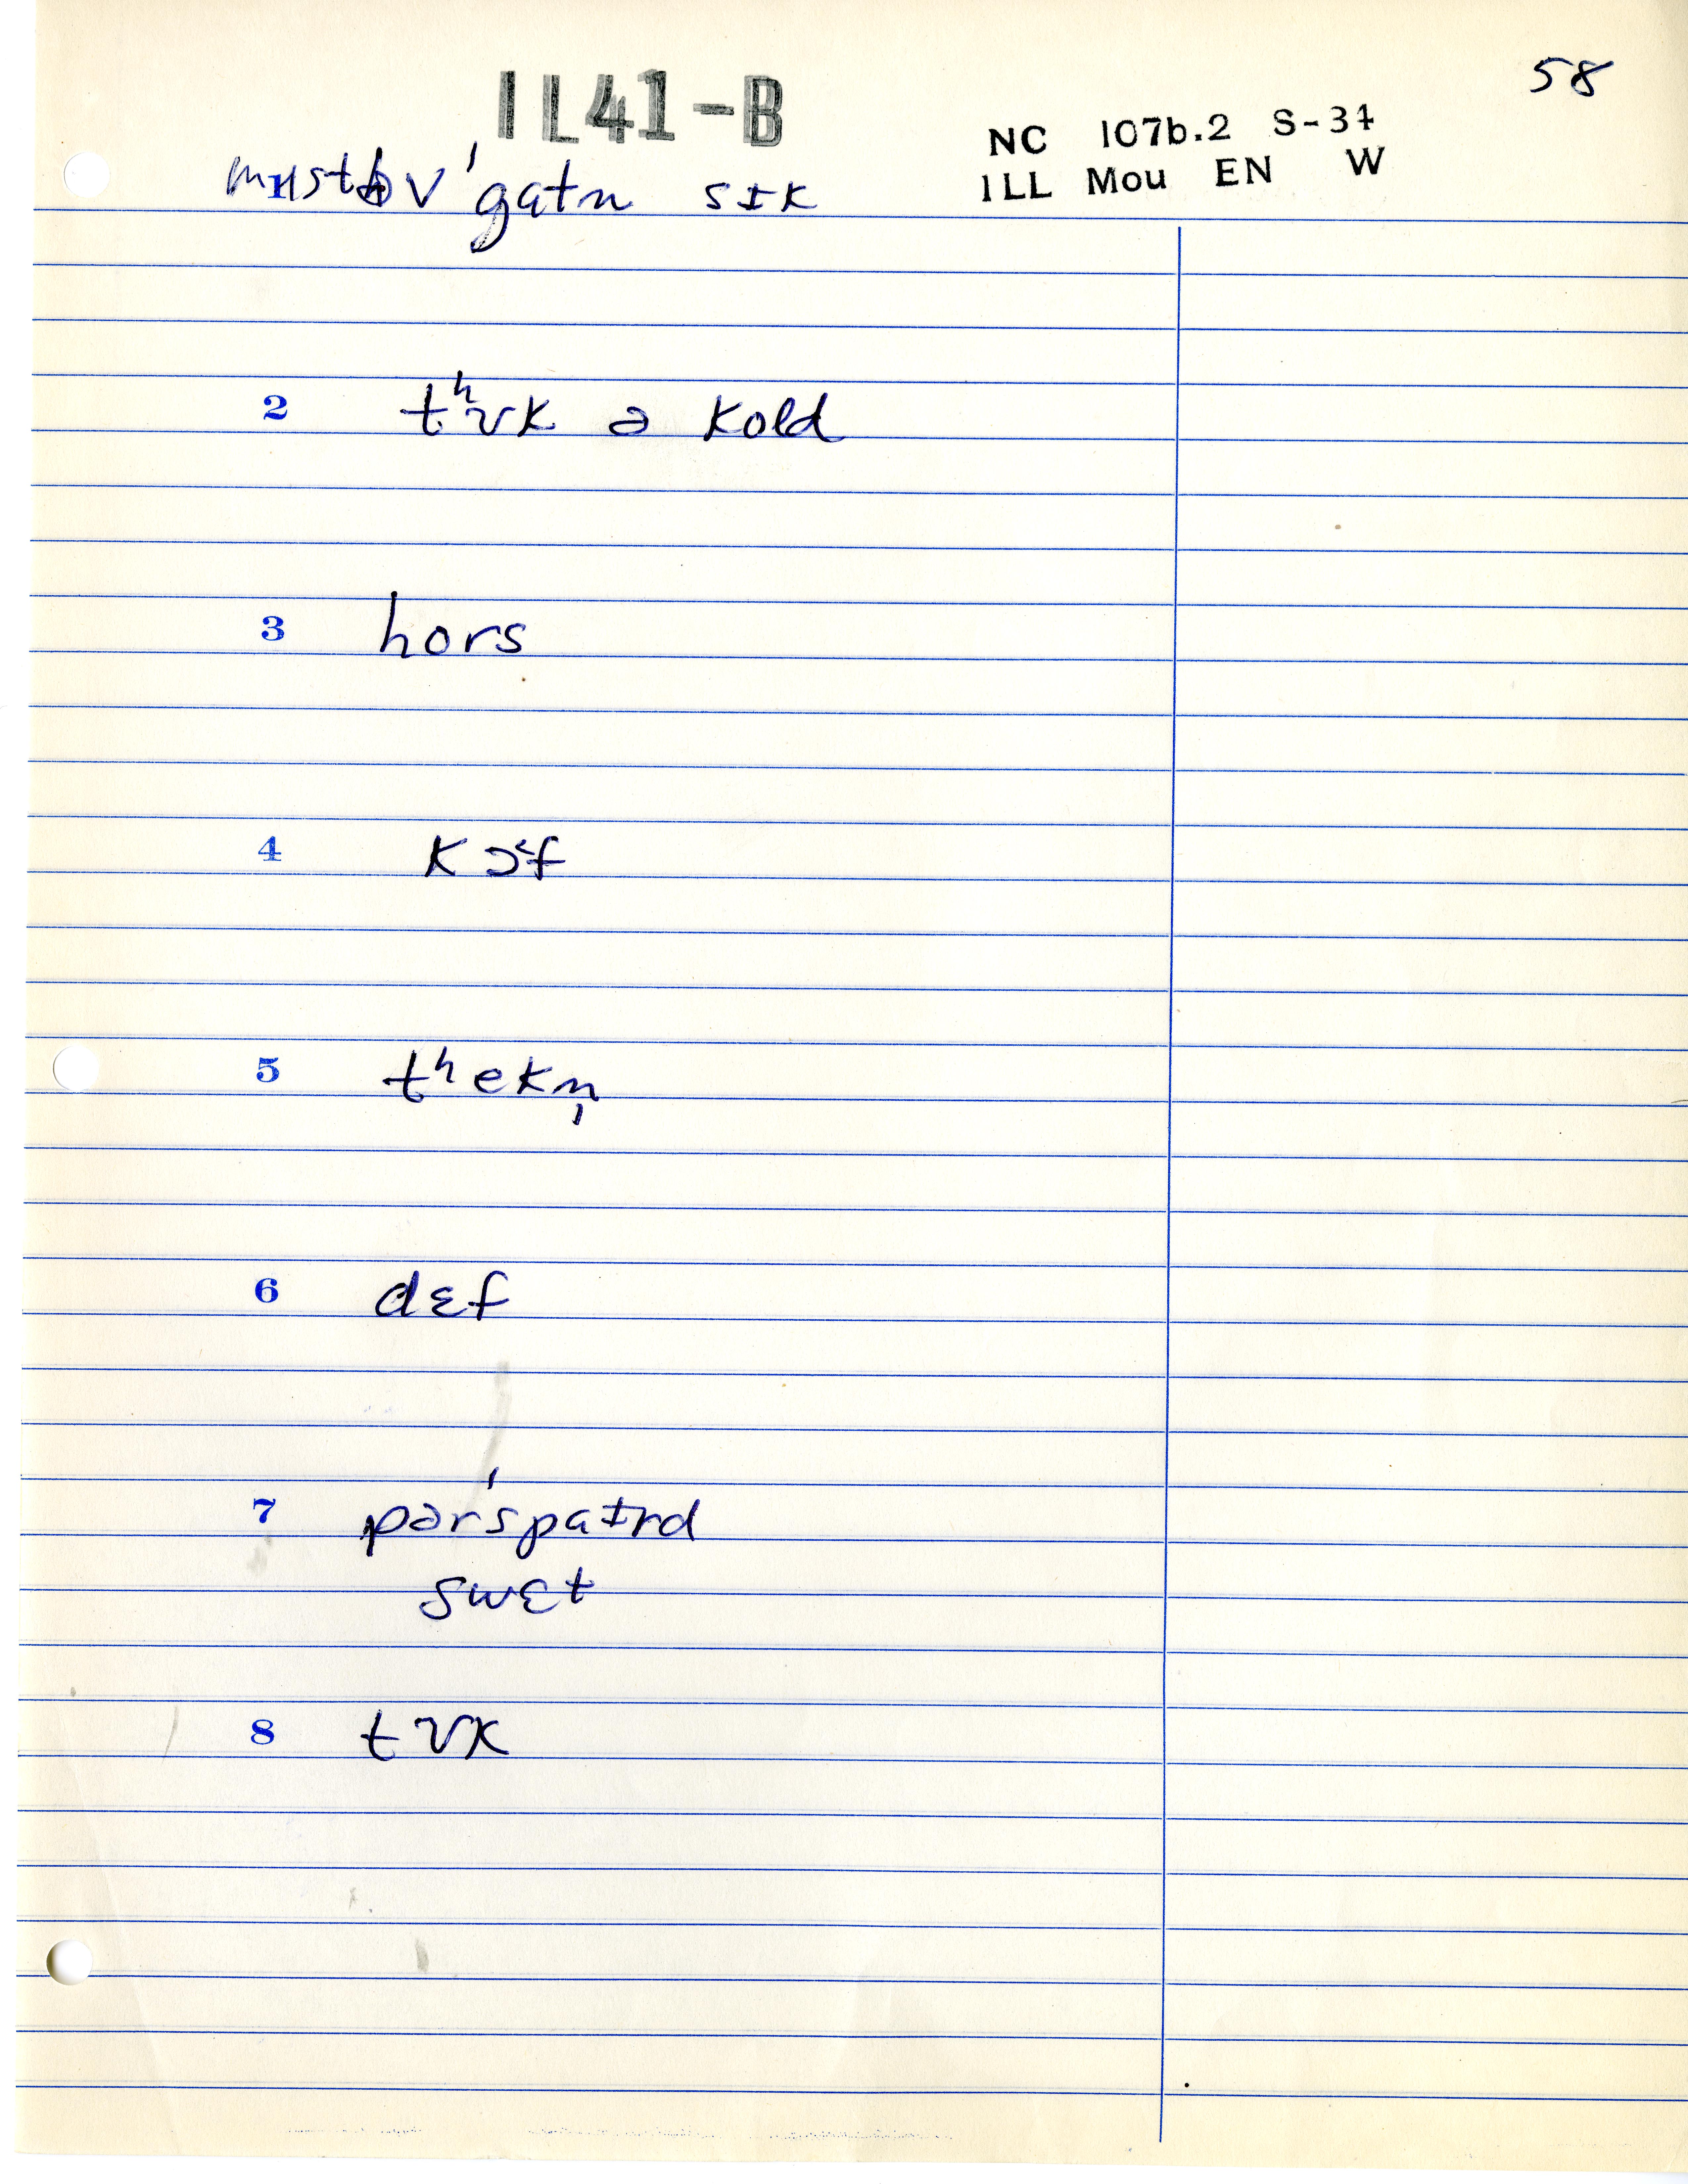 58
IL41-B
NC 107b.2 S-34
ILL Mou EN W
1 ˈgatn sɪk
2 tʰʊk ə kold
3 hors
4 kɔˤf
5 tʰekn̩
6 dɛf
7 pərˈspaɪrd
swɛt
8 tʊk